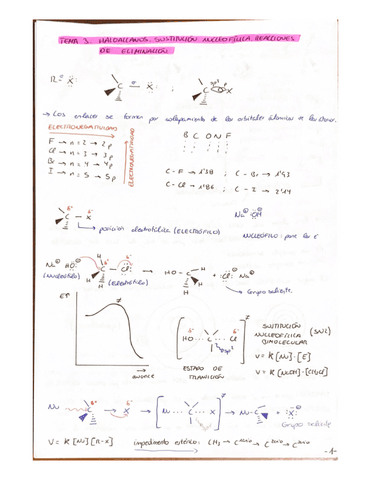 TEMA 3. HALOALCANOS. SUSTITUCIÓN NUCLEOFÍLICA. REACCIONES
DE ELIMINACIÓN
R ≡ X
C X ; sp3 C X
→ Los enlaces se forman por solapamiento de los orbitales
ELECTRONEGATIVIDAD
F → n = 2 → 2p
Cl → n = 3 → 3p
Br → n = 4 → 4p
I → n = 5 → 5p
ELECTRONEGATIVIDAD
B C O N F
C - F → 1'38 ; C - Br → 1'93
C - Cl → 1'86 ; C - I → 2'14
δ+ δ-
C - X
→ posición electrófila (ELECTRÓFILO)
Na⊕ ⊖OH
NUCLEÓFILO:
Na⊕ HO:⊖ H C - Cl: → HO - C H H + :Cl:⊖ Na⊕
(nucleófilo) (electrófilo) Grupo saliente
E↑
avance
[HO ... C ... Cl]≠
sp2
ESTADO DE
TRANSICIÓN
SUSTITUCIÓN
NUCLEOFÍLICA (SN2)
BIMOLECULAR
V = K [Nu] · [E]
V = K [NaOH] · [CH3Cl]
Nu C - X → [Nu ... C ... X]≠ → Nu - C + :X:⊖
Grupo saliente
V = K [Nu] [R-X] impedimento estérico: CH3 → C → C → C
-1-